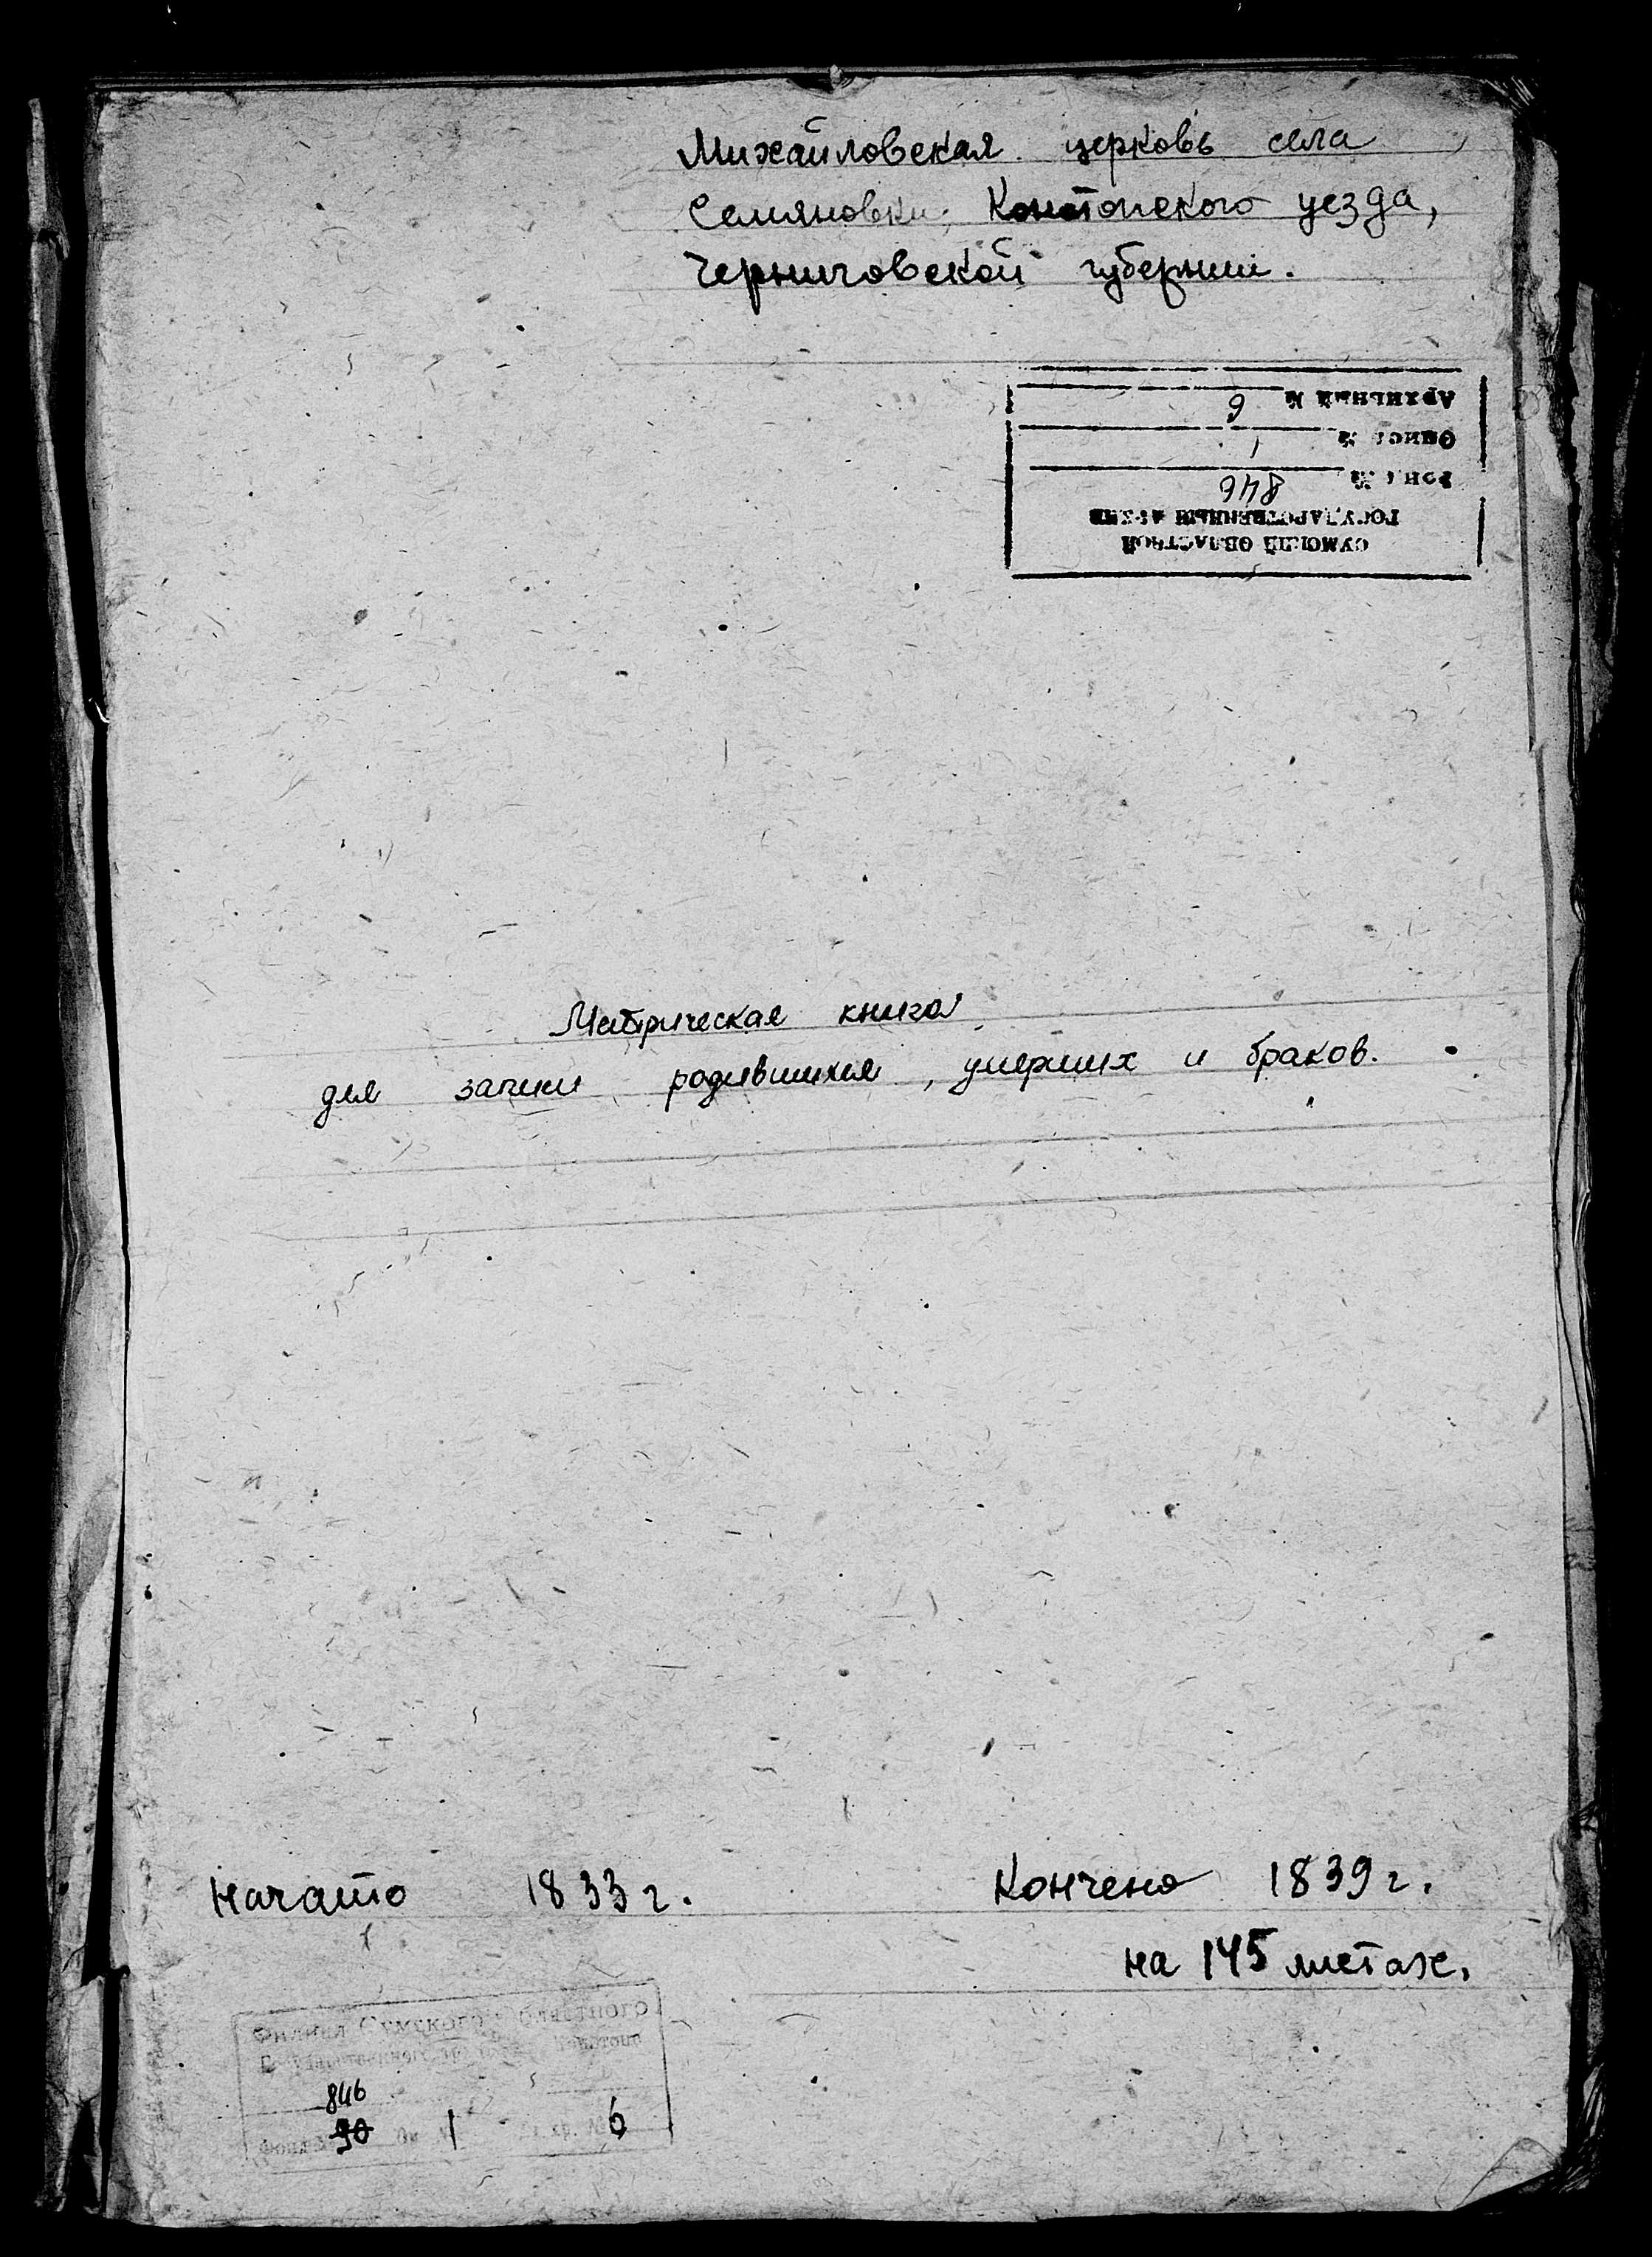 Михайловская церковь села
Семяновки, Конотопского уезда,
Черниговской губернии.
Архивный № 6
Опись № 1
Фонд № 846
ГОСУДАРСТВЕННЫЙ АРХИВ
СУМСКИЙ ОБЛАСТНОЙ
Метрическая книга
для записи родившихся, умерших и браков.
Начато 1833 г.
Кончено 1839 г.
на 145 листах.
Филиал Сумского областного
Государственного Конотоп
846
Фонд № 90 Оп. № 1 Ед. хр. № 6